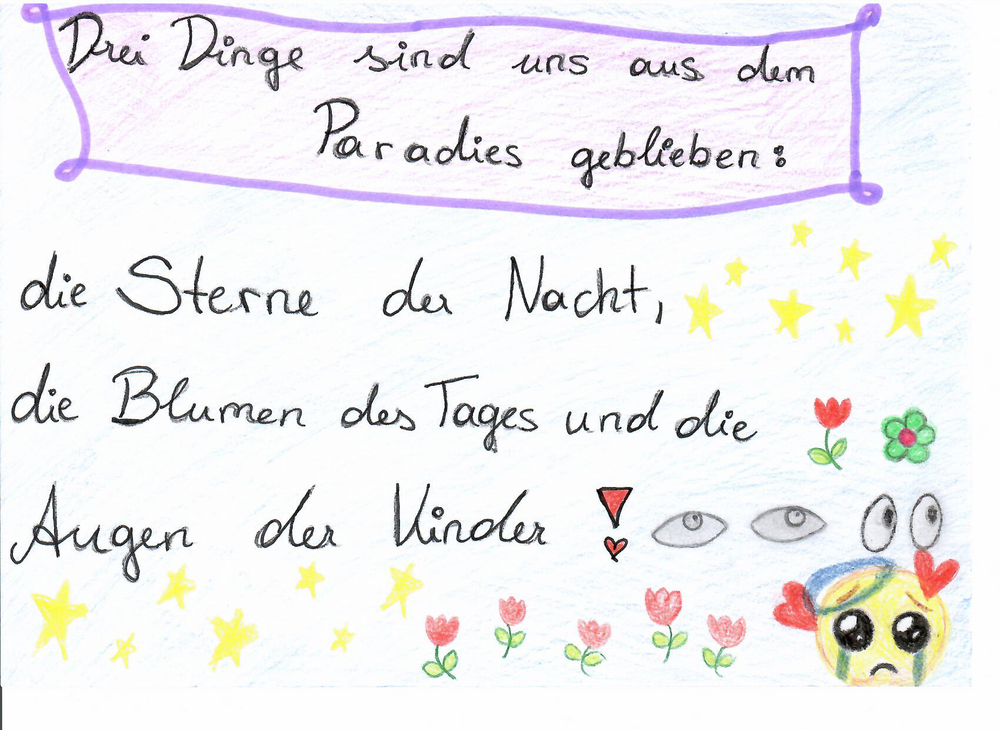 Drei Dinge sind uns aus dem
Paradies geblieben:
die Sterne der Nacht,
die Blumen des Tages und die
Augen der Kinder!